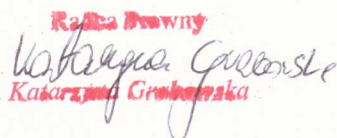 Radca Prawny
Katarzyna Grabowska
Katarzyna Grabowska